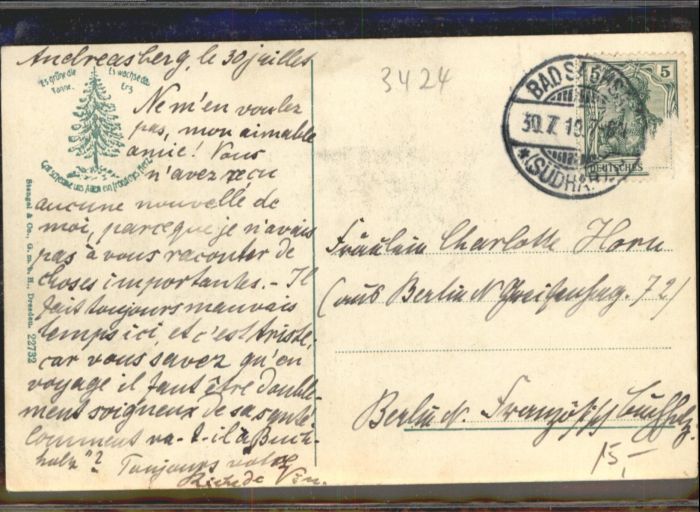 Andreasberg, le 30 juillet
Es grüne die Tanne.
Es wachse das Erz
Gott schenke uns Allen ein fröhliches Herz.
Ne m'en voulez
pas, mon aimable
amie! Vous
n'avez reçu
aucune nouvelle de
moi, parceque je n'avais
pas à vous raconter de
choses importantes. - Il
fait toujours mauvais
temps ici, et c'est triste,
car vous savez qu'en
voyage il faut être double-
ment soigneux de sa santé.
Comment va-t-il à Buch-
holz"? Toujours votre
Stengel & Co., G. m. b. H., Dresden. 22732
3424
BAD SACHSA
30.7.10.
*(SÜDHARZ)
5
DEUTSCHES
Fräulein Charlotte Horn
(aus Berlin N Greifenhag. 72)
Berlin N. Französisch Buchholz
15,-